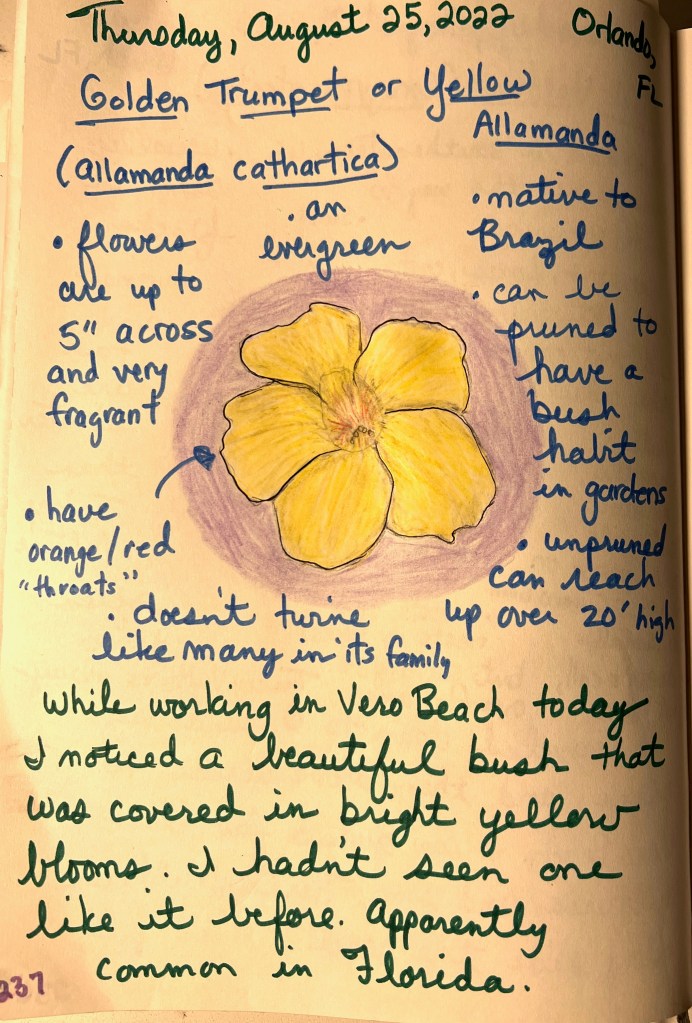 Thursday, August 25, 2022
Orlando,
FL
Golden Trumpet or Yellow
Allamanda
(allamanda cathartica)
• an
evergreen
• flowers
are up to
5" across
and very
fragrant
• have
orange/red
"throats"
• doesn't twine
like many in its family
• native to
Brazil
• can be
pruned to
have a
bush
habit
in gardens
• unpruned
can reach
up over 20' high
While working in Vero Beach today
I noticed a beautiful bush that
was covered in bright yellow
blooms. I hadn't seen one
like it before. Apparently
common in Florida.
237